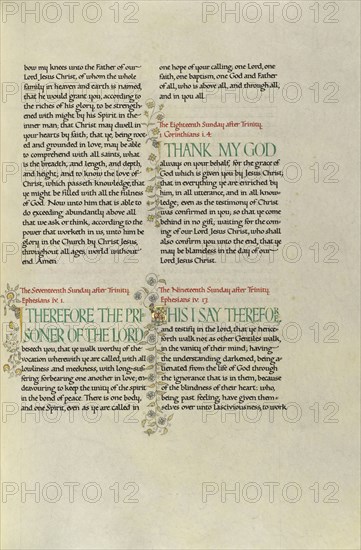 bow my knees unto the Father of our
Lord Jesus Christ, of whom the whole
family in heaven and earth is named,
that he would grant you, according to
the riches of his glory, to be strength-
ened with might by his Spirit in the
inner man; that Christ may dwell in
your hearts by faith; that ye, being root-
ed and grounded in love, may be able
to comprehend with all saints, what
is the breadth, and length, and depth,
and height; and to know the love of
Christ, which passeth knowledge, that
ye might be filled with all the fullness
of God. Now unto him that is able to
do exceeding abundantly above all
that we ask or think, according to the
power that worketh in us, unto him be
glory in the Church by Christ Jesus,
throughout all ages, world without
end. Amen.
The Seventeenth Sunday after Trinity
Ephesians iv. 1.
I THEREFORE THE PRI-
SONER OF THE LORD
beseech you, that ye walk worthy of the
vocation wherewith ye are called, with all
lowliness and meekness, with long-suf-
fering, forbearing one another in love; en-
deavouring to keep the unity of the spirit
in the bond of peace. There is one body,
and one Spirit, even as ye are called in
one hope of your calling; one Lord, one
faith, one baptism, one God and Father
of all, who is above all, and through all,
and in you all.
The Eighteenth Sunday after Trinity
1 Corinthians i. 4.
I THANK MY GOD
always on your behalf, for the grace of
God which is given you by Jesus Christ;
that in everything ye are enriched by
him, in all utterance, and in all know-
ledge; even as the testimony of Christ
was confirmed in you; so that ye come
behind in no gift, waiting for the com-
ing of our Lord Jesus Christ, who shall
also confirm you unto the end, that ye
may be blameless in the day of our
Lord Jesus Christ.
The Nineteenth Sunday after Trinity
Ephesians iv. 17.
THIS I SAY THEREFORE
and testify in the Lord, that ye hence-
forth walk not as other Gentiles walk,
in the vanity of their mind; having
the understanding darkened, being a-
lienated from the life of God through
the ignorance that is in them, because
of the blindness of their heart: who,
being past feeling, have given them-
selves over unto Lasciviousness, to work